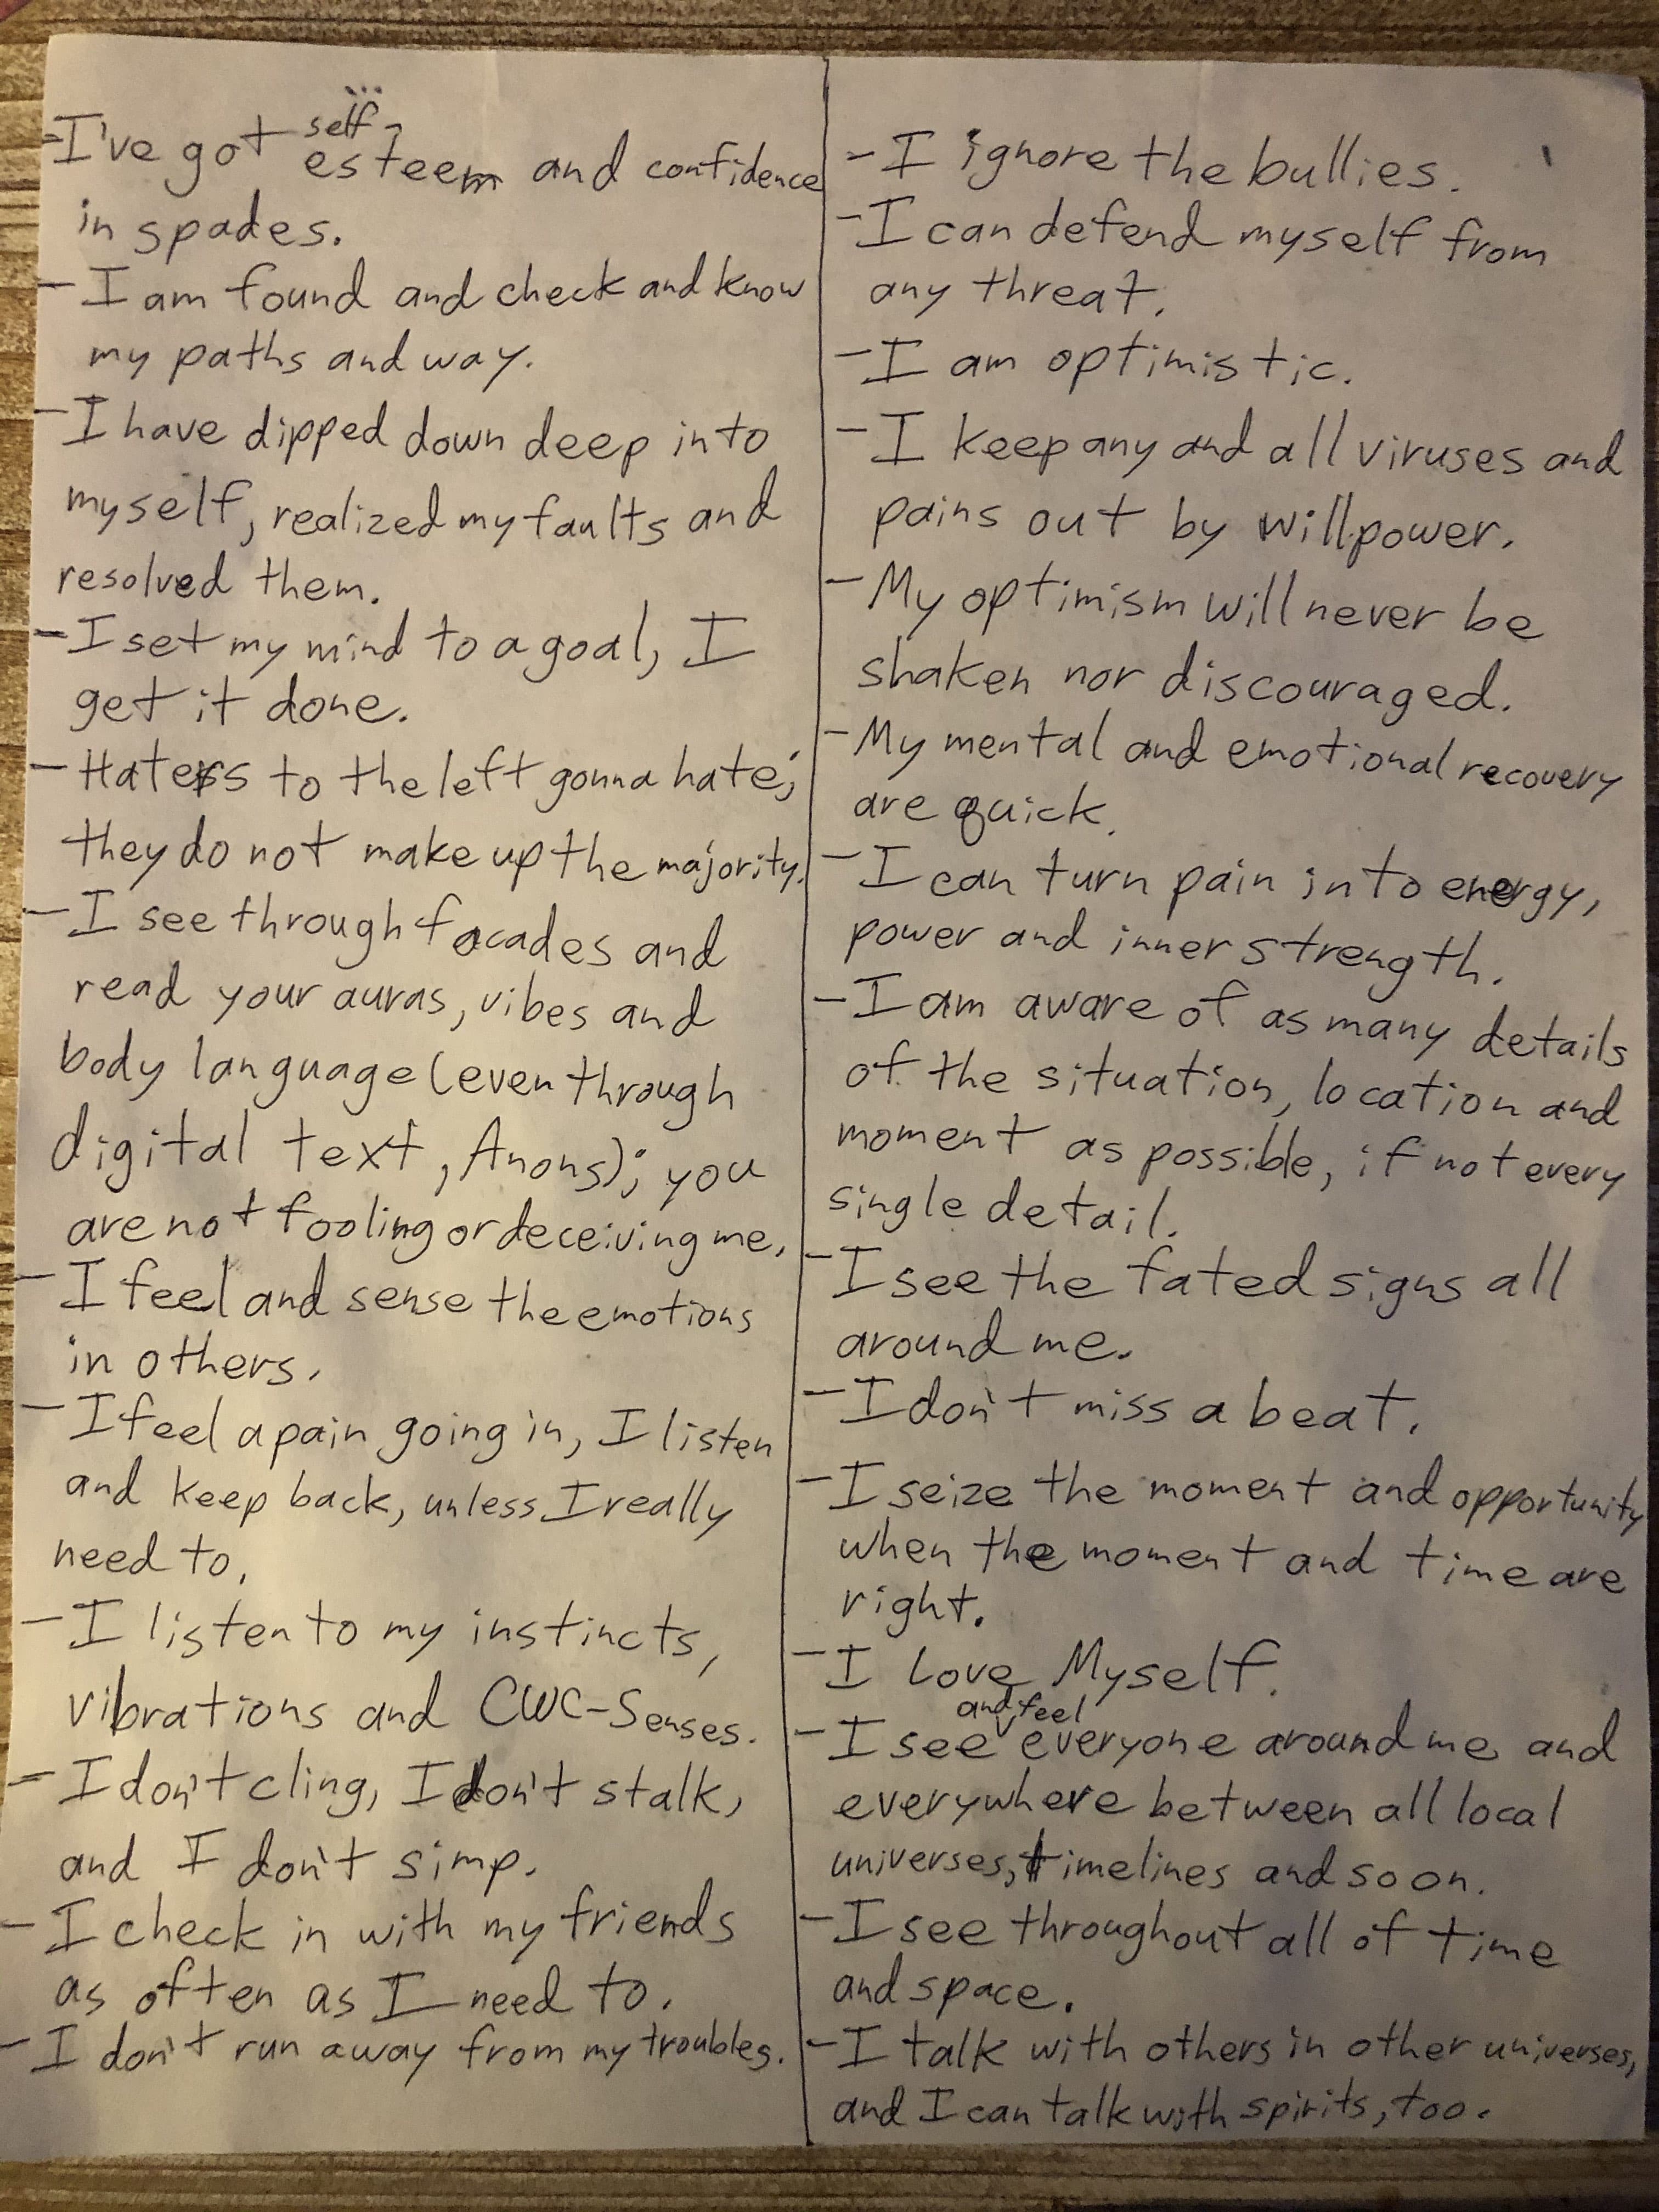 -I've got self-esteem and confidence
in spades.
-I am found and check and know
my paths and way.
-I have dipped down deep into
myself, realized my faults and
resolved them.
-I set my mind to a goal, I
get it done.
-Haters to the left gonna hate;
they do not make up the majority.
-I see through facades and
read your auras, vibes and
body language (even through
digital text, Anons); you
are not fooling or deceiving me.
-I feel and sense the emotions
in others.
-I feel a pain going in, I listen
and keep back, unless I really
need to.
-I listen to my instincts,
vibrations and CWC-Senses.
-I don't cling, I don't stalk,
and I don't simp.
-I check in with my friends
as often as I need to.
-I don't run away from my troubles.
-I ignore the bullies.
-I can defend myself from
any threat.
-I am optimistic.
-I keep any and all viruses and
pains out by willpower.
-My optimism will never be
shaken nor discouraged.
-My mental and emotional recovery
are quick.
-I can turn pain into energy,
power and inner strength.
-I am aware of as many details
of the situation, location and
moment as possible, if not every
single detail.
-I see the fated signs all
around me.
-I don't miss a beat.
-I seize the moment and opportunity
when the moment and time are
right.
-I Love Myself.
-I see and feel everyone around me and
everywhere between all local
universes, timelines and so on.
-I see throughout all of time
and space.
-I talk with others in other universes,
and I can talk with spirits, too.